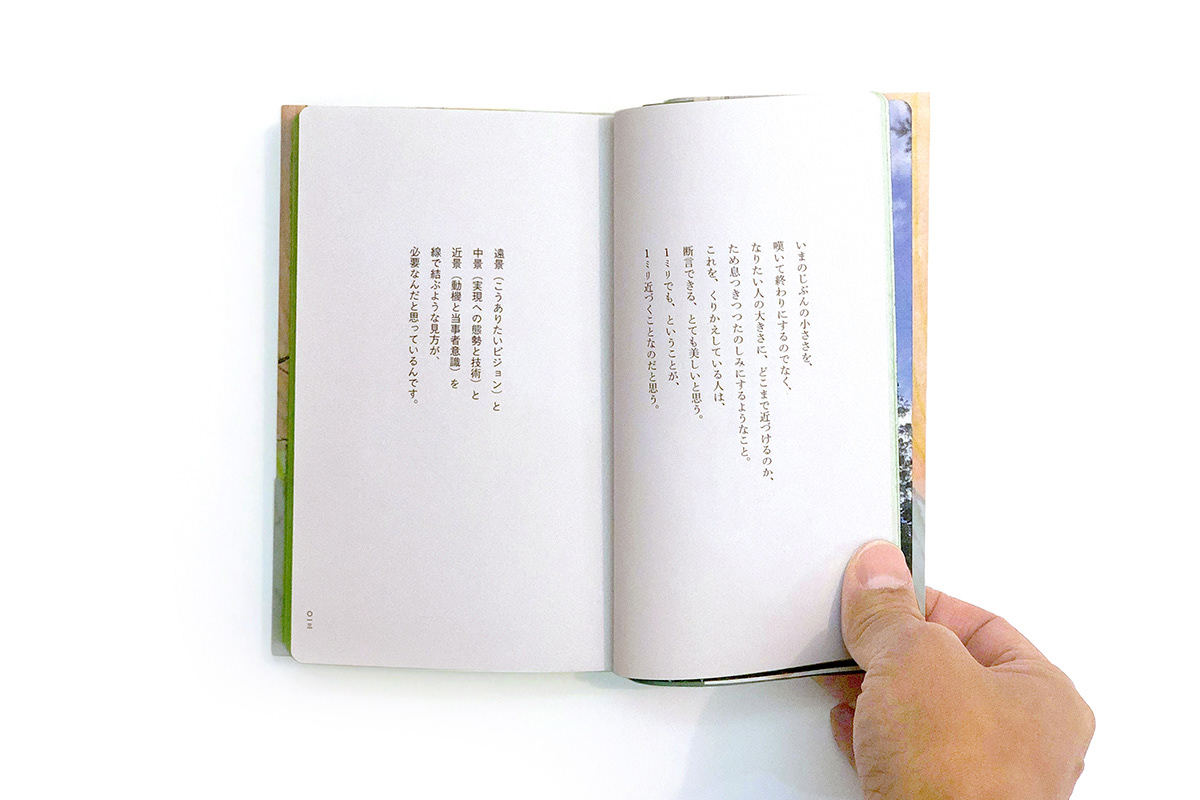 いまのじぶんの小ささを、
嘆いて終わりにするのでなく、
なりたい人の大きさに、どこまで近づけるのか、
ため息つきつつたのしみにするようなこと。
これを、くりかえしている人は、
断言できる、とても美しいと思う。
1ミリでも、ということが、
1ミリ近づくことなのだと思う。
遠景（こうありたいビジョン）と
中景（実現への態勢と技術）と
近景（動機と当事者意識）を
線で結ぶような見方が、
必要なんだと思っているんです。
〇一三